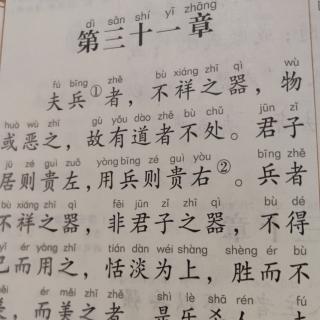 dì sān shí yī zhāng
第三十一章
fú bīng zhě bù xiáng zhī qì wù
夫兵①者，不祥之器，物
huò wù zhī gù yǒu dào zhě bù chǔ jūn zǐ
或恶之，故有道者不处。君子
jū zé guì zuǒ yòng bīng zé guì yòu bīng zhě
居则贵左，用兵则贵右②。兵者
bù xiáng zhī qì fēi jūn zǐ zhī qì bù dé
不祥之器，非君子之器，不得
yǐ ér yòng zhī tián dàn wéi shàng shèng ér bù
已而用之，恬淡为上，胜而不
měi ér měi zhī zhě shì lè shā rén fú
美，而美之者 是乐杀人 夫